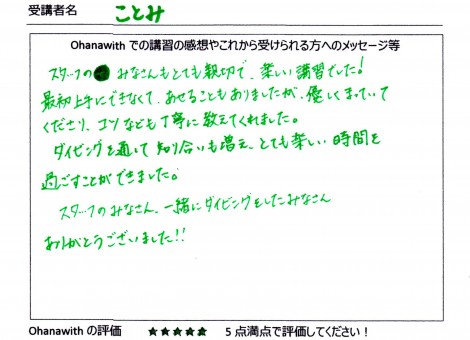 受講者名 ことみ
Ohanawith での講習の感想やこれから受けられる方へのメッセージ等
スタッフの みなさんもとても親切で、楽しい講習でした!
最初上手にできなくて、あせることもありましたが、優しくまっていて
くださり、コツなども丁寧に教えてくれました。
ダイビングを通して知り合いも増え、とても楽しい時間を
過ごすことができました。
スタッフのみなさん、一緒にダイビングをしたみなさん
ありがとうございました!!
Ohanawith の評価 ★★★★★ 5点満点で評価してください！